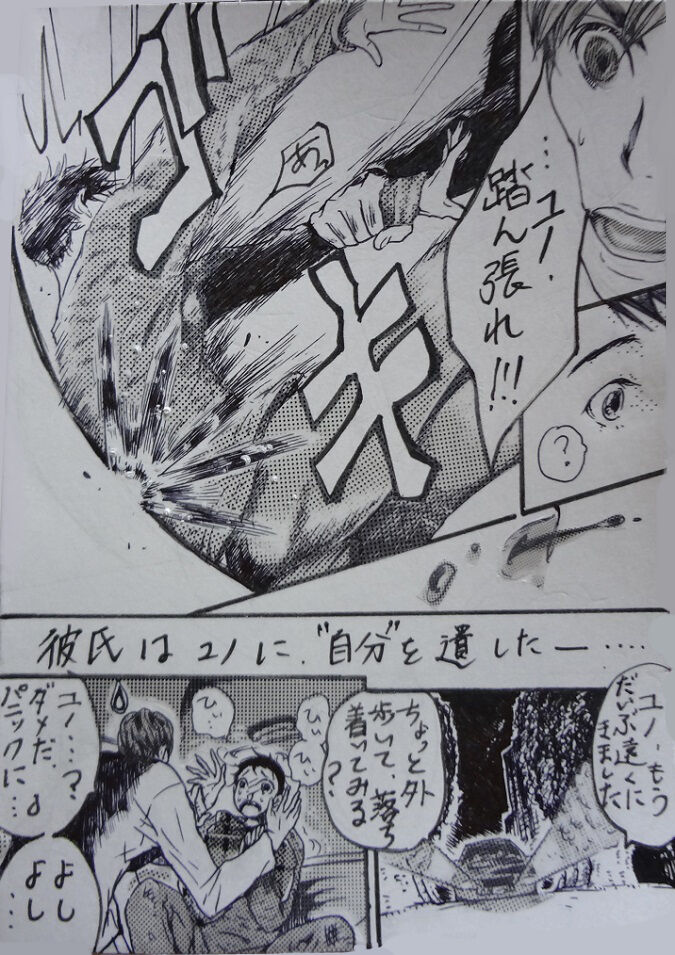 …ユノ、
踏ん張れ!!!
?
あっ
グキ
彼氏はユノに、"自分"を遺したー……
ユノ、もう
だいぶ遠くに
きました
ちょっと外
歩いて、落ち
着いてみる
?
ひぃ
ひぃ
ひぃ
ユノ…?
ダメだ、
パニックに…
よし
よし…